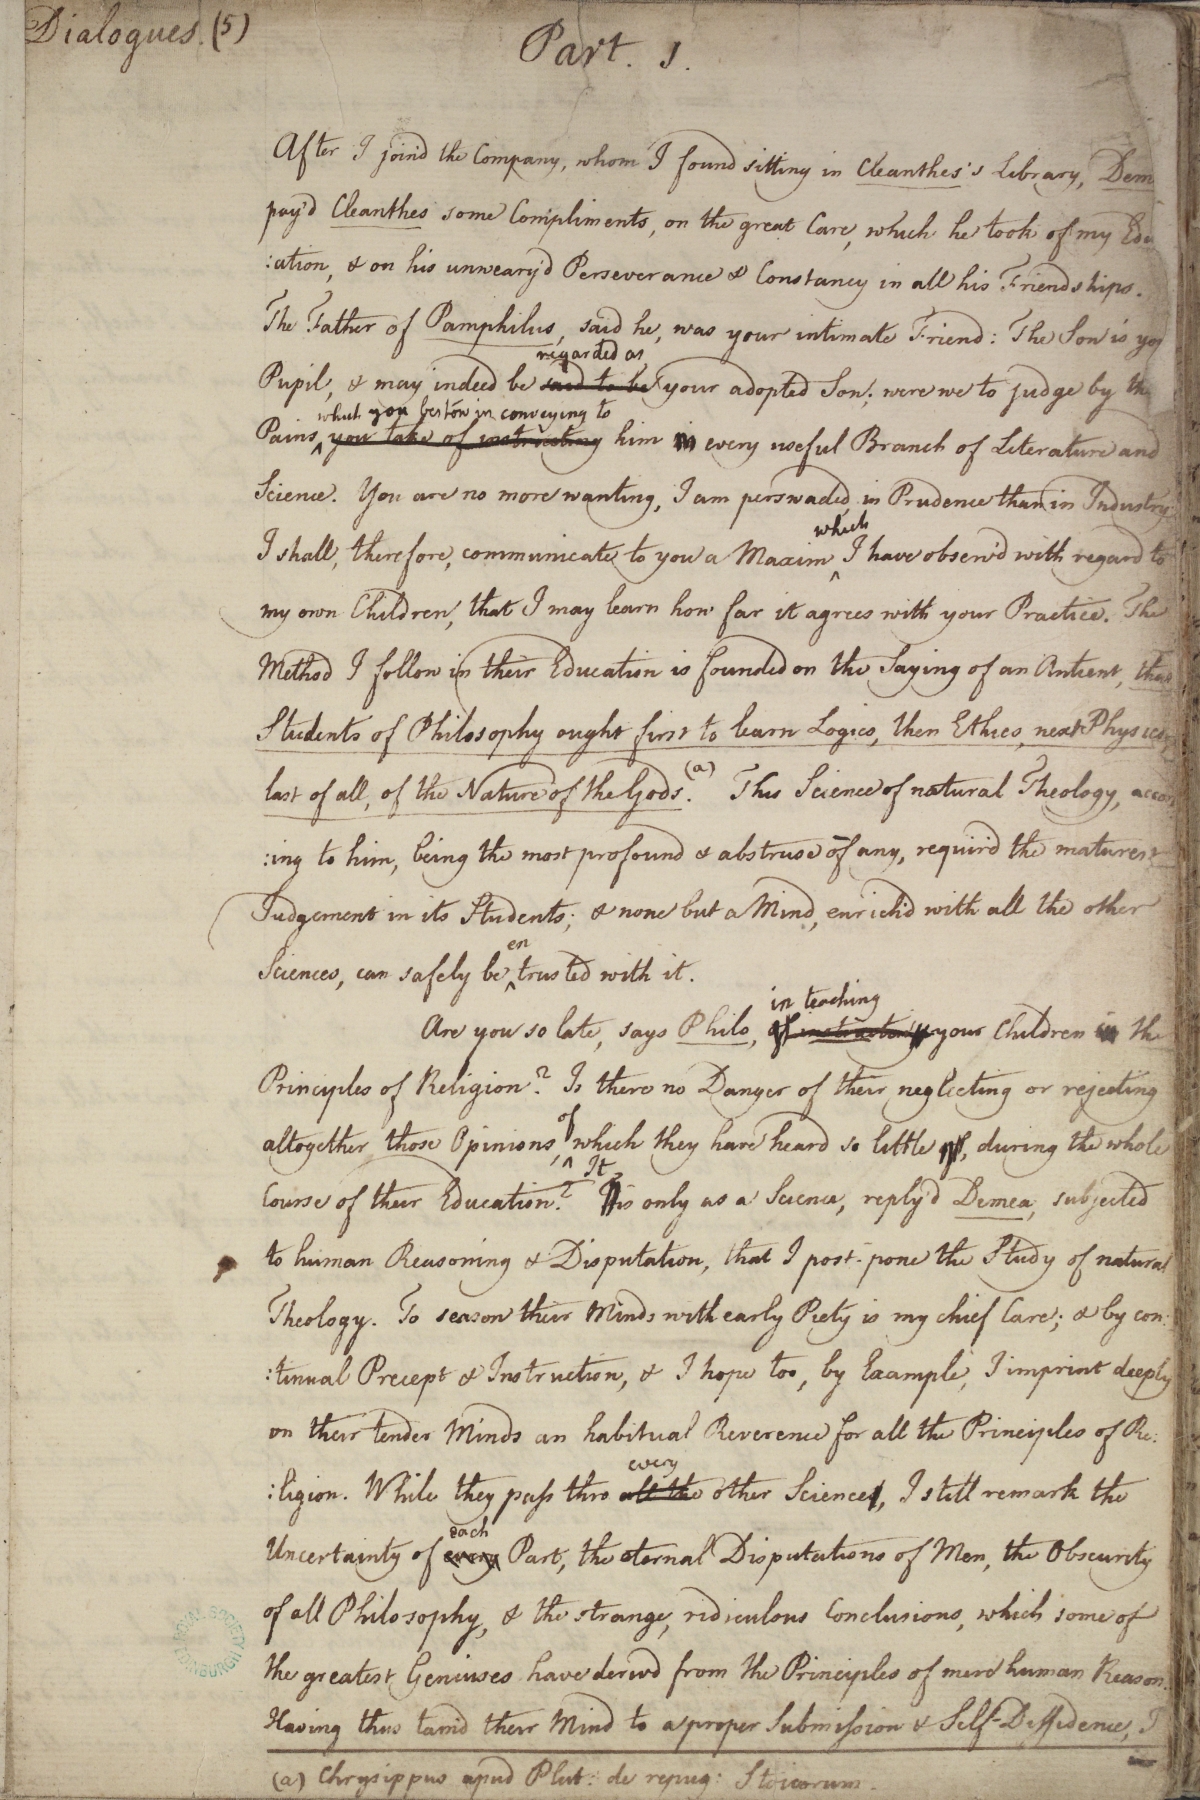 Dialogues. (5)
Part. 1.
After I join'd the Company, whom I found sitting in Cleanthes's Library, Dem
pay'd Cleanthes some Compliments, on the great Care, which he took of my Edu
:cation, & on his unweary'd Perseverance & Constancy in all his Friendships.
The Father of Pamphilus, said he, was your intimate Friend: The Son is you
regarded as
Pupil, & may indeed be said to be your adopted Son; were we to judge by the
what you bestow in conveying to
Pains, you take of instructing him in every useful Branch of Literature and
Science. You are no more wanting, I am perswaded, in Prudence than in Industry
which
I shall, therefore, communicate to you a Maxim ^ I have observ'd with regard to
my own Children, that I may learn how far it agrees with your Practice. The
Method I follow in their Education is founded on the Saying of an Antient, that
Students of Philosophy ought first to learn Logics, then Ethics, next Physics,
last of all, of the Nature of the Gods. (a) This Science of natural Theology, accor
:ing to him, being the most profound & abstruse of any, requir'd the maturest
Judgement in its Students; & none but a Mind, enrich'd with all the other
en
Sciences, can safely be ^ trusted with it.
in teaching
Are you so late, says Philo, of instructing your Children in the
Principles of Religion? Is there no Danger of their neglecting or rejecting
of
altogether those Opinions, ^ which they have heard so little of, during the whole
It
Course of their Education? is only as a Science, reply'd Demea, subjected
to human Reasoning & Disputation, that I post-pone the Study of natural
Theology. To season their Minds with early Piety is my chief Care; & by con:
:tinual Precept & Instruction, & I hope too, by Example, I imprint deeply
on their tender Minds an habitual Reverence for all the Principles of Re:
every
:ligion. While they pass thro all the other Sciences, I still remark the
each
Uncertainty of every Part, the eternal Disputations of Men, the Obscurity
of all Philosophy, & the strange, ridiculous Conclusions, which some of
the greatest Geniuses have deriv'd from the Principles of mere human Reason.
Having thus tam'd their Mind to a proper Submission & Self-Diffidence, I
(a) Chrysippus apud Plut: de repug: Stoicorum.
ROYAL SOCIETY EDINBURGH